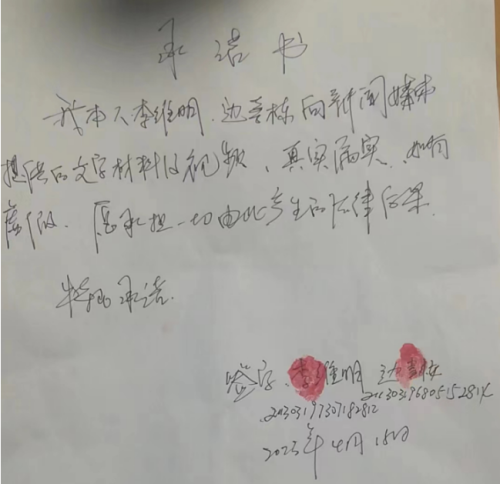 承诺书
我本人李维明、边善栋向新闻媒体
提供的文字材料及视频、真实属实、如有
虚假、愿承担一切由此产生的法律后果.
特此承诺.
签字:李维明 边善
2023年4月18日